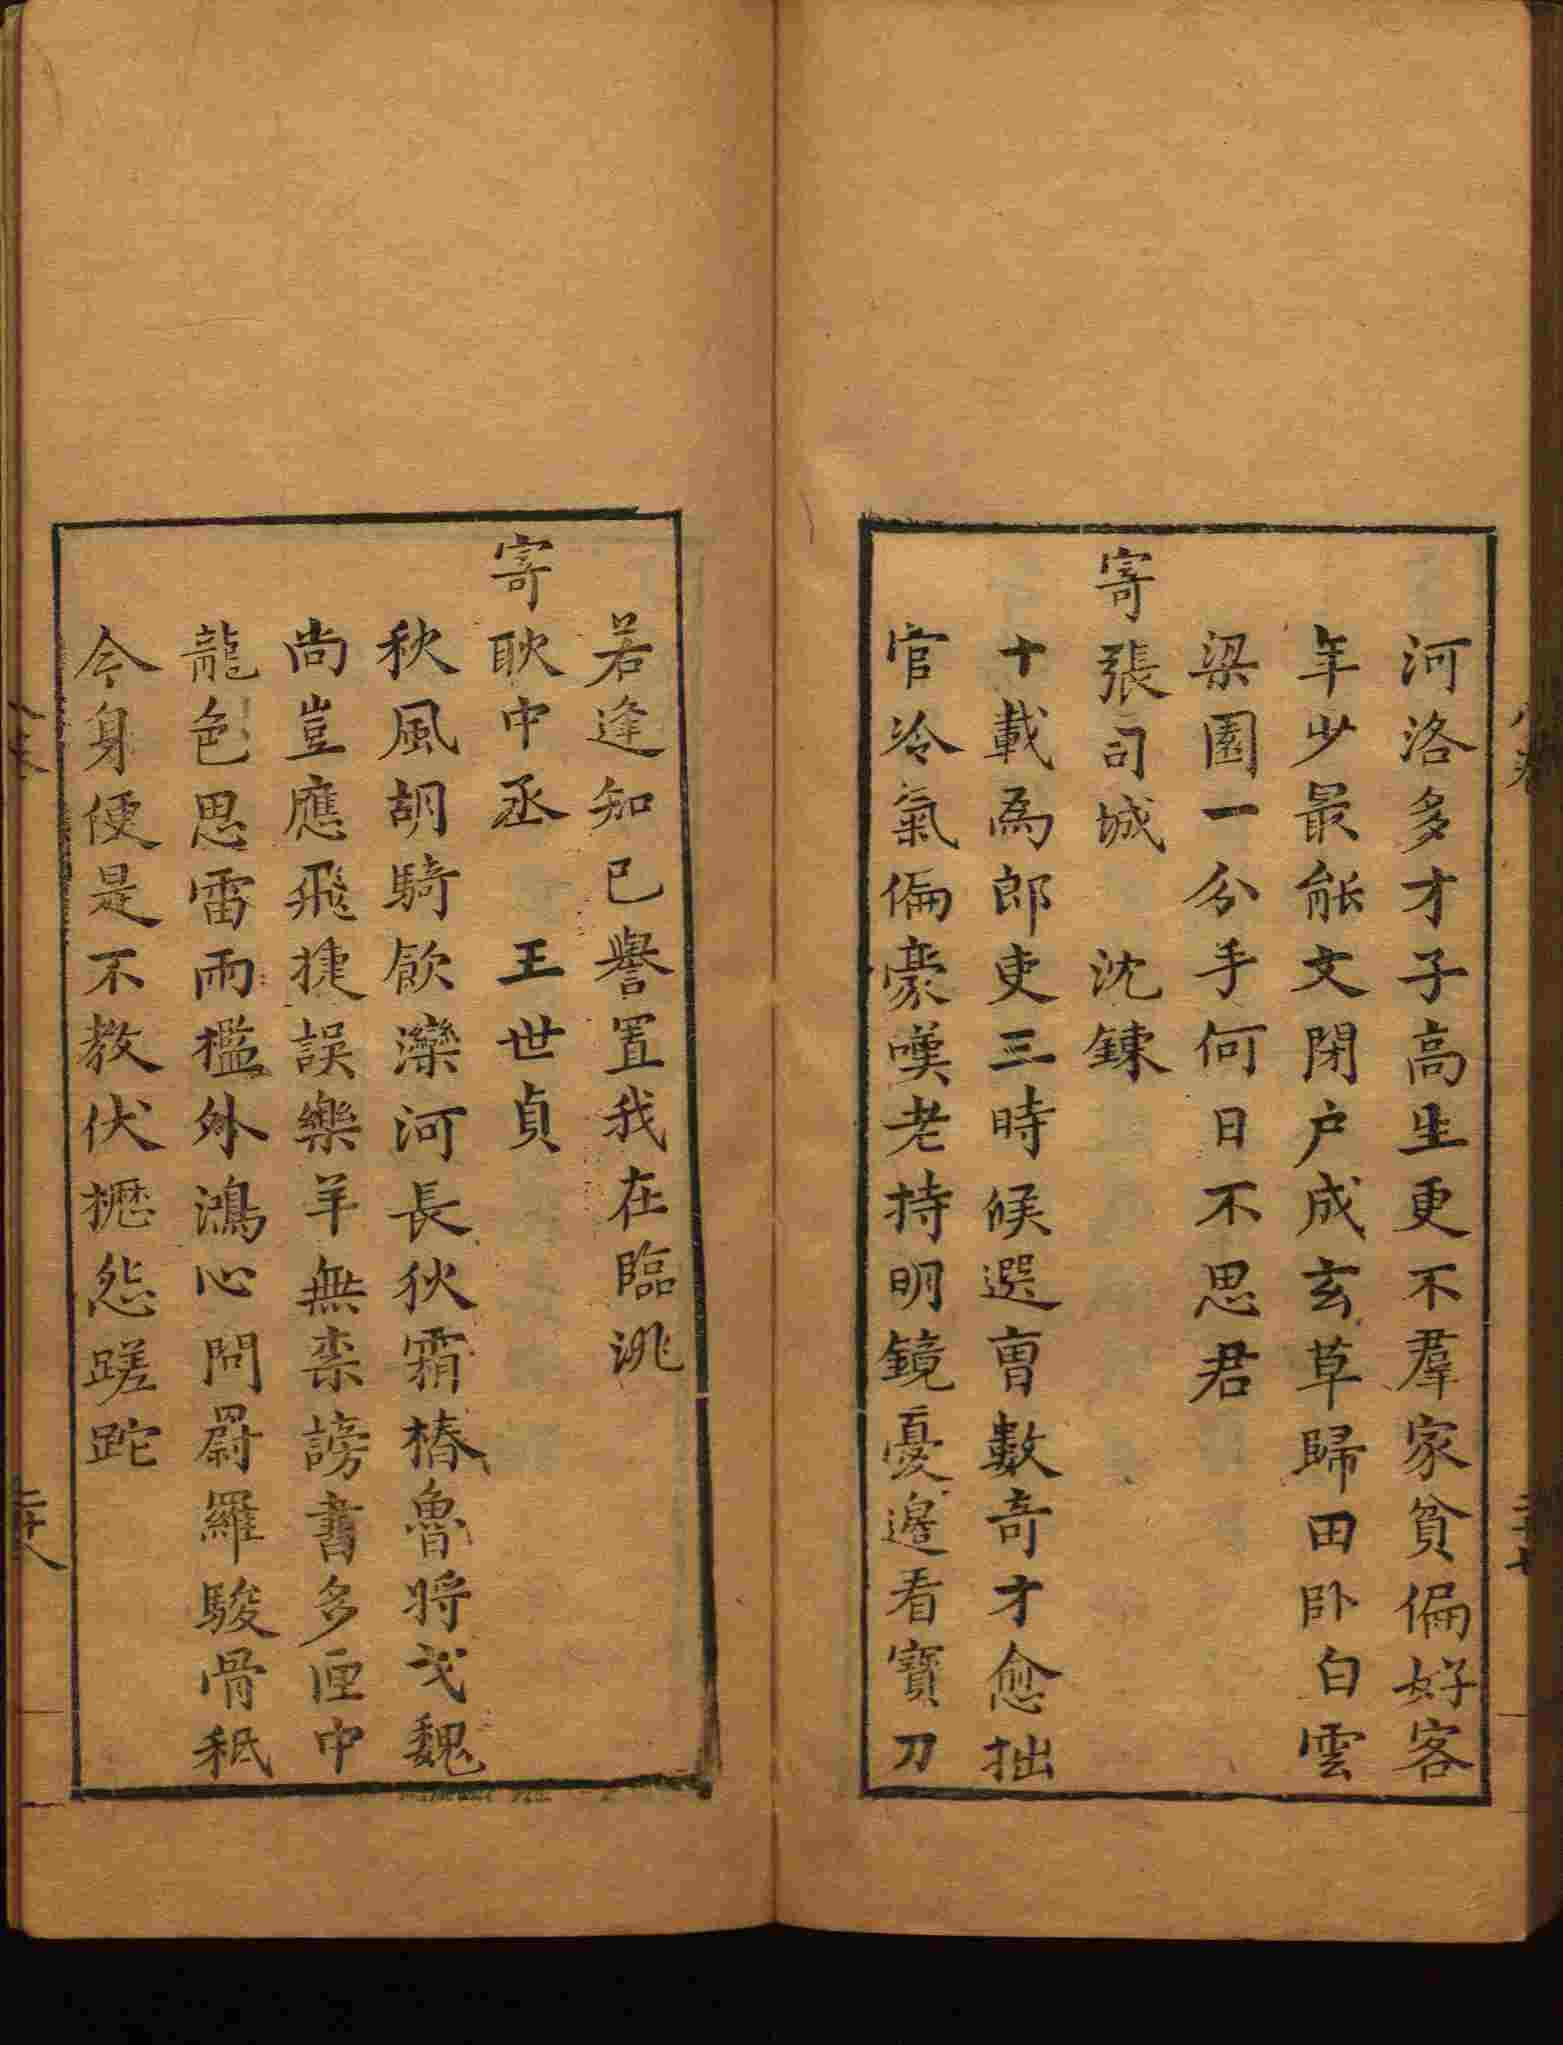 河洛多才子高生更不羣家貧偏好客
年少最能文閉户成玄草歸田卧白雲
梁園一分手何日不思君
寄張司城　沈鍊
十載為郎吏三時候選曹數奇才愈拙
官冷氣偏豪嘆老持明鏡憂邊看寶刀
若逢知己譽置我在臨洮
寄耿中丞　王世貞
秋風胡騎飲灤河長狄霜樁魯將戈魏
尚豈應飛捷誤樂羊無柰謗書多匣中
龍色思雷雨檻外鴻心問罻羅駿骨秪
今身便是不教伏櫪怨蹉跎
二十八